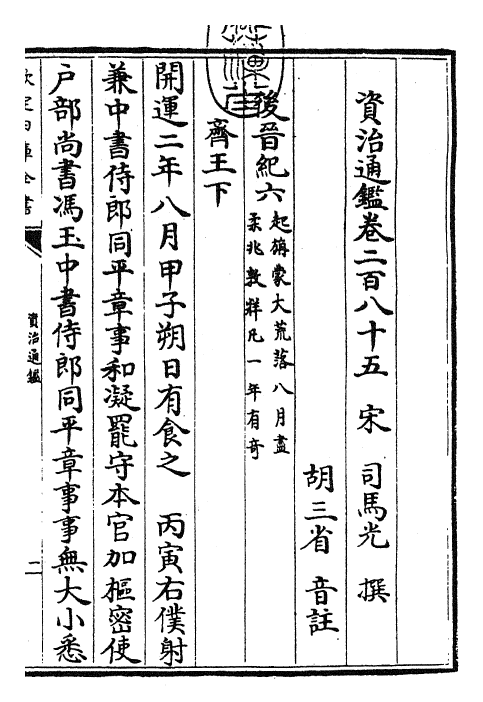 資治通鑑卷二百八十五 宋 司馬光 撰
胡三省 音註
後晉紀六 起旃蒙大荒落八月盡
柔兆敦牂凡一年有奇
齊王下
開運二年八月甲子朔日有食之 丙寅右僕射
兼中書侍郎同平章事和凝罷守本官加樞密使
户部尚書馮玉中書侍郎同平章事事無大小悉
欽定四庫全書
資治通鑑
二